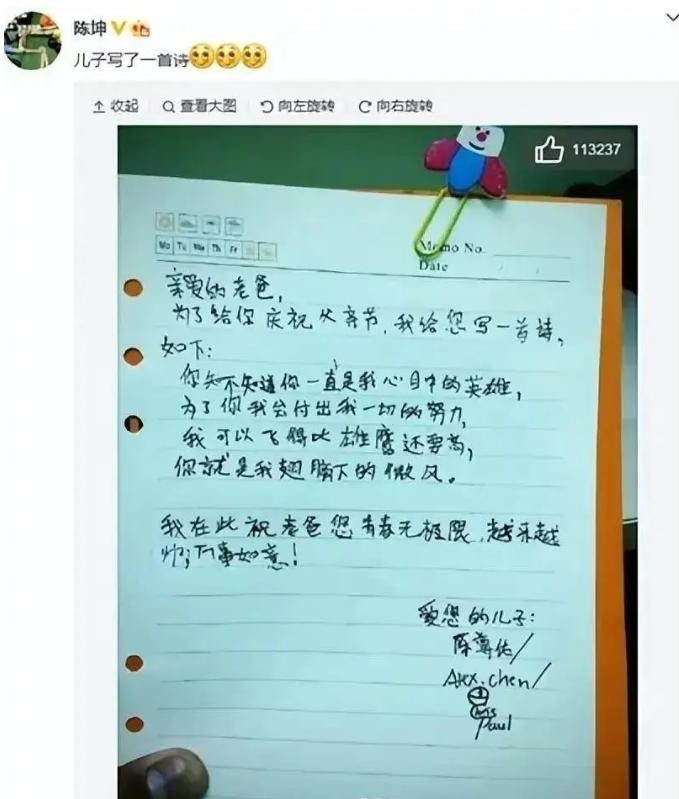 陈坤
儿子写了一首诗
收起 查看大图 向左旋转 向右旋转
113237
Memo No.
Mo Tu We Th Fr
Date
亲爱的老爸,
为了给你庆祝父亲节,我给您写一首诗。
如下:
你知不知道你一直是我心目中的英雄,
为了你我会付出我一切的努力,
我可以飞得比雄鹰还要高,
你就是我翅膀下的微风。
我在此祝老爸您青春无极限,越来越
万事如意!
爱您的儿子:
陈尊佑/
Alex.chen/
Paul